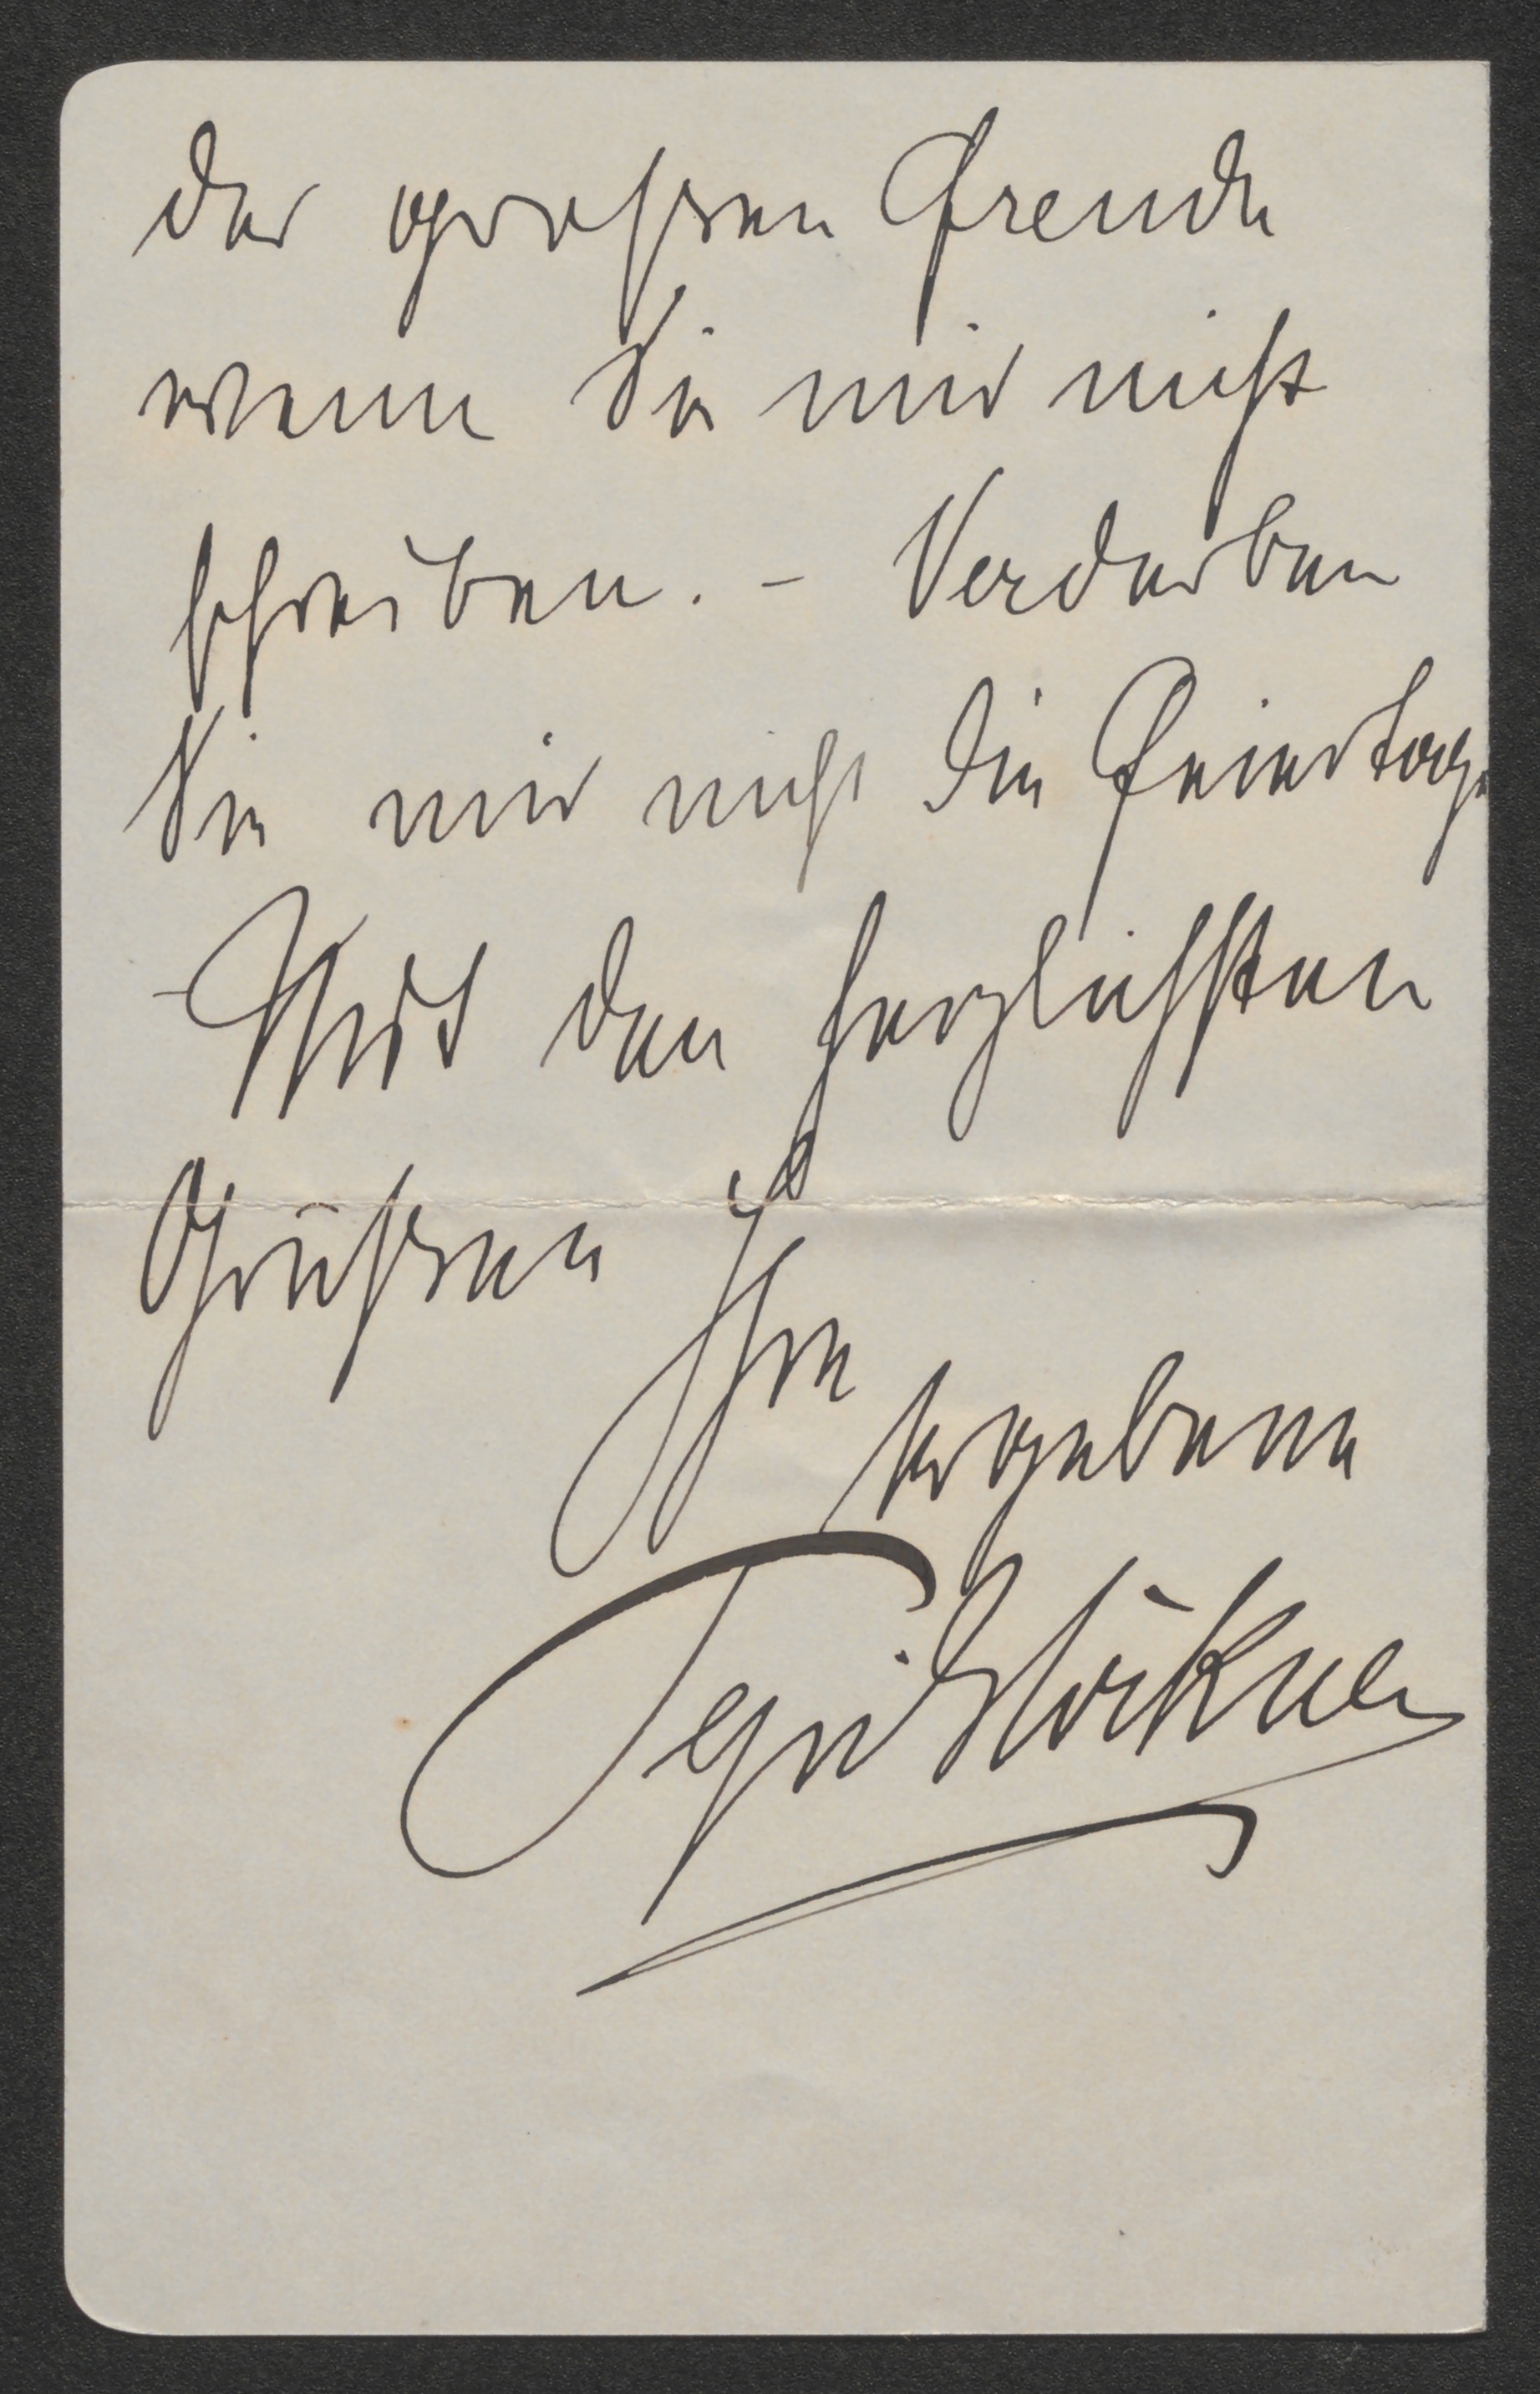 der grossen Freude
wenn Sie mir nicht
schreiben. – Verderben
Sie mir nicht die Feiertage
– Mit den herzlichsten
Grüssen
Ihre
ergebene